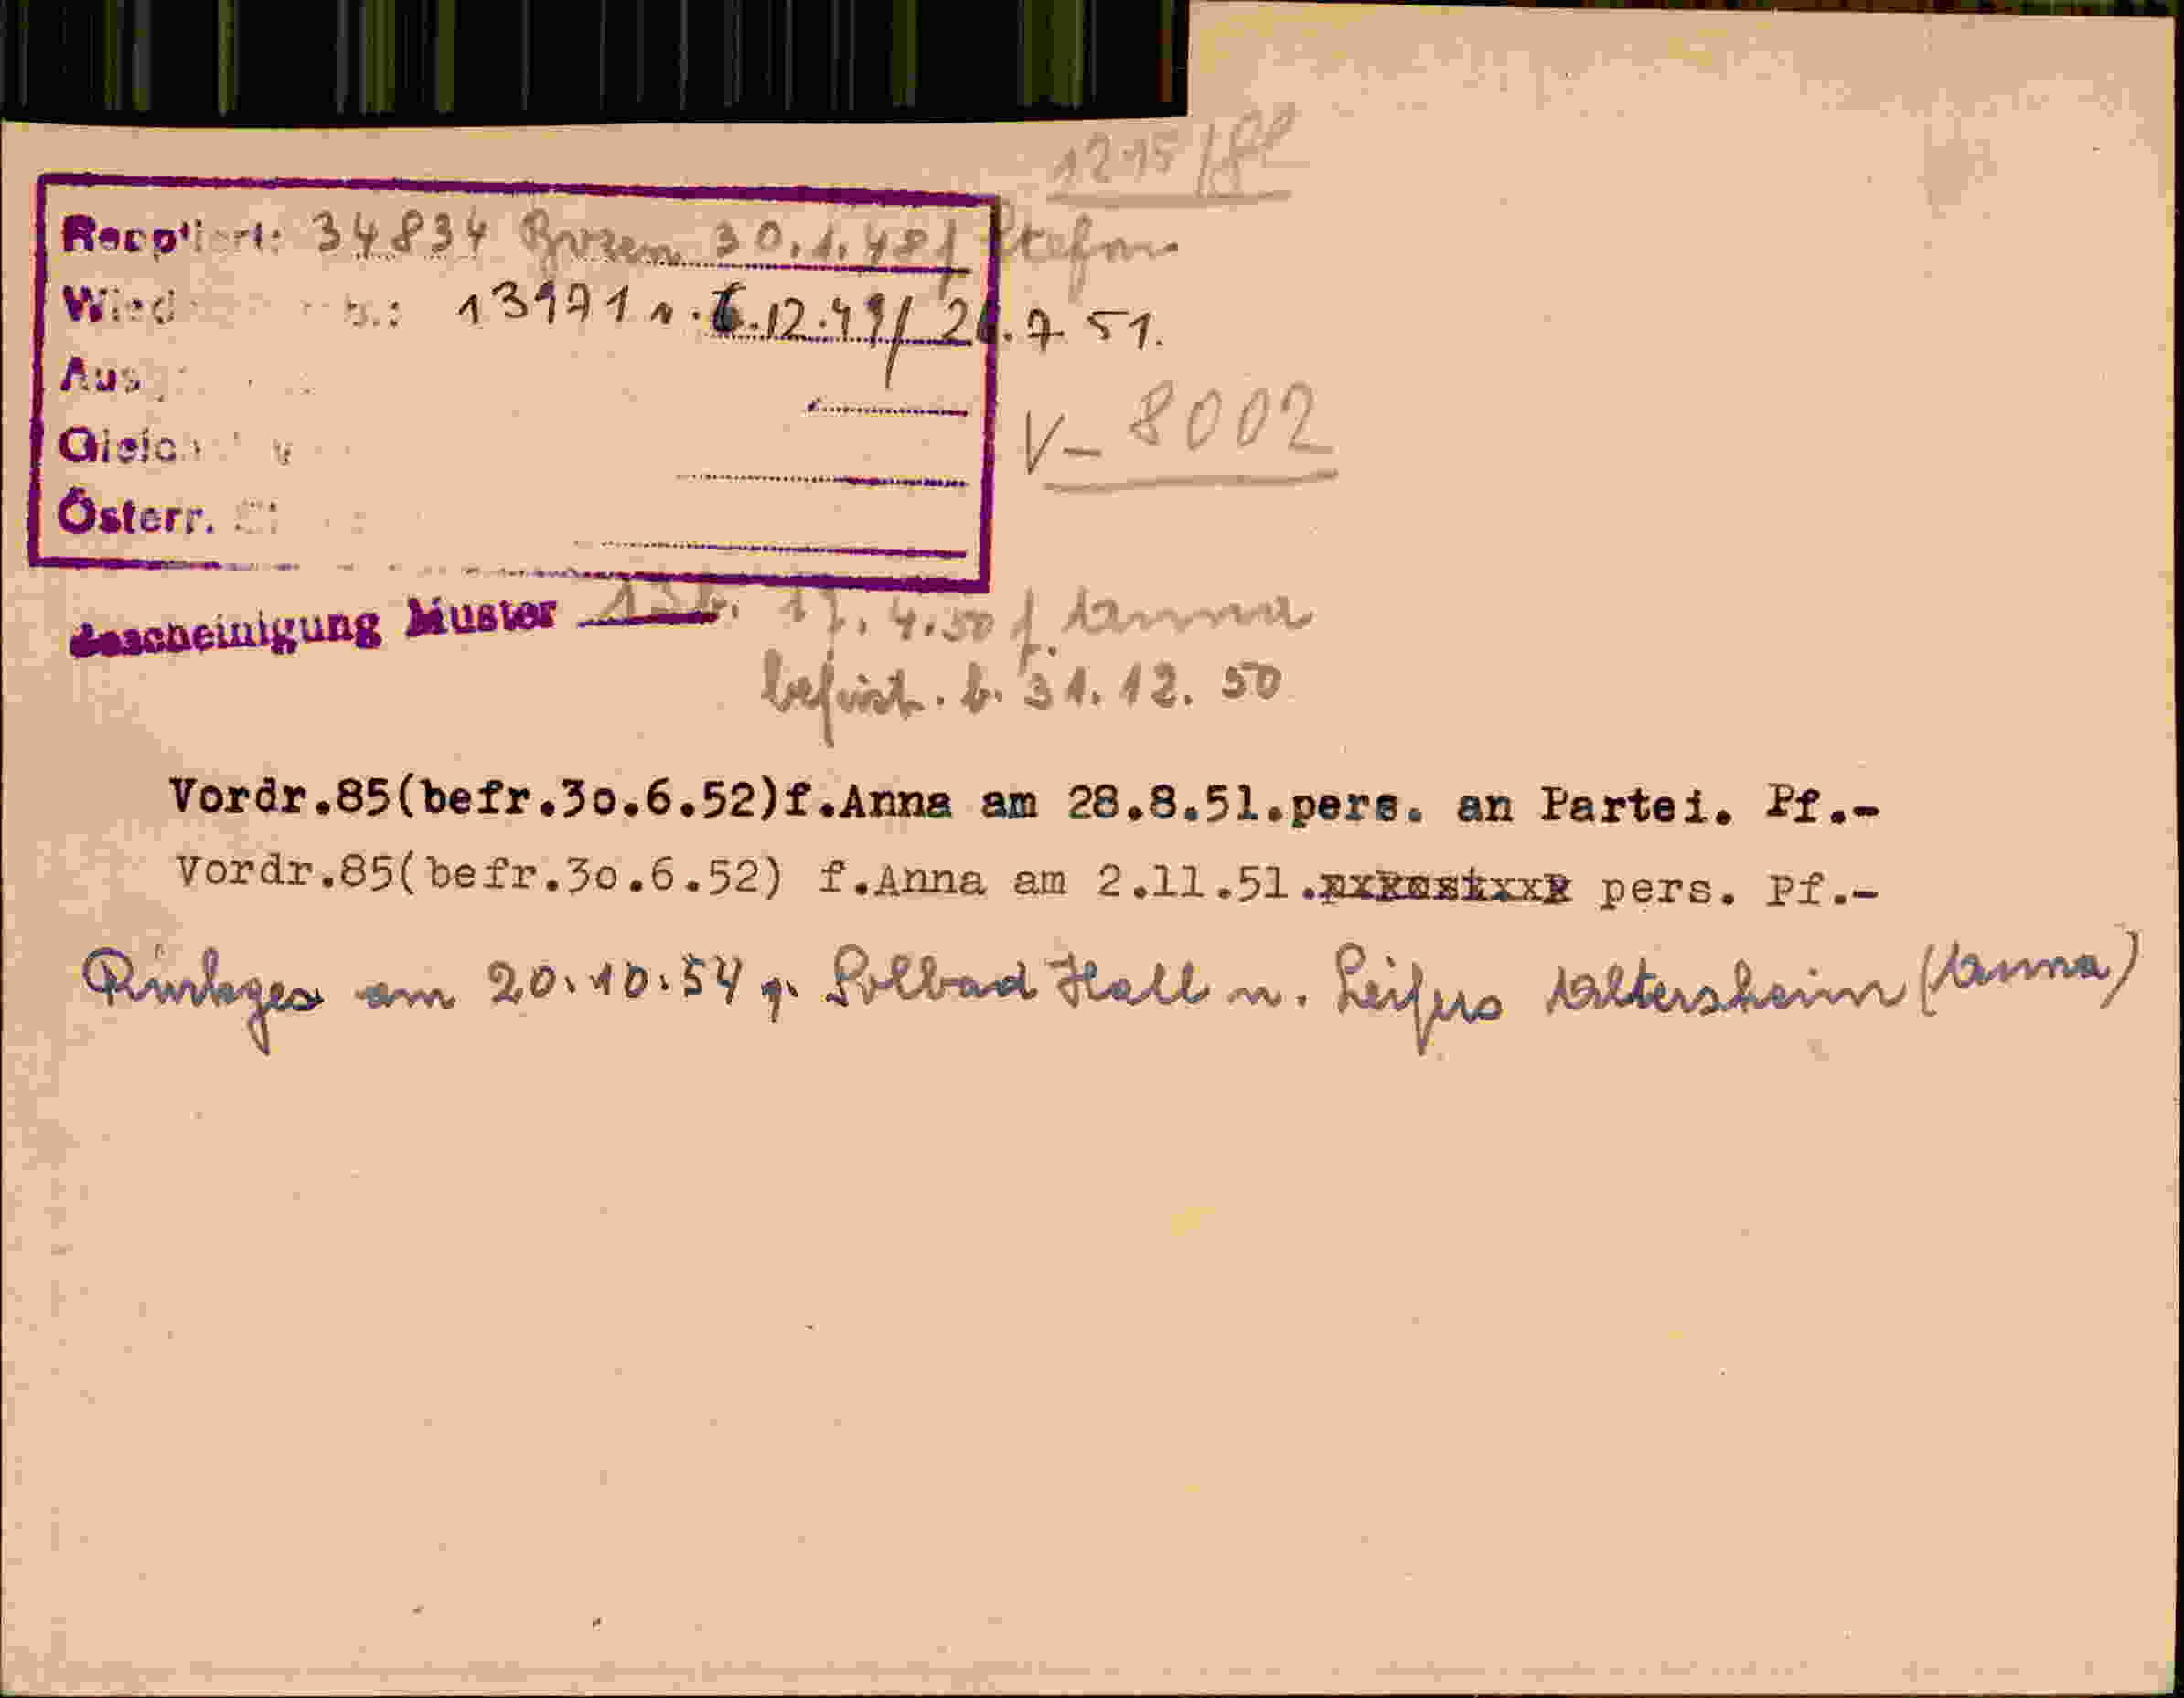 1215/
Reoptiert: 34834 Bozen 30.1.48 f Stefan
Wied b.: 13971 v. 6.12.49/ 21.7.51.
Aus
Gleich
V- 8002
Österr.
Bescheinigung Muster 17.4.50 f. Anna
befrist. b. 31.12.50
Vordr.85(befr.3o.6.52)f.Anna am 28.8.51.pers. an Partei. Pf.-
Vordr.85(befr.3o.6.52) f.Anna am 2.11.51. pers. Pf.-
am 20.10.54 g. Solbad Hall n. Leifers Altersheim (Anna)